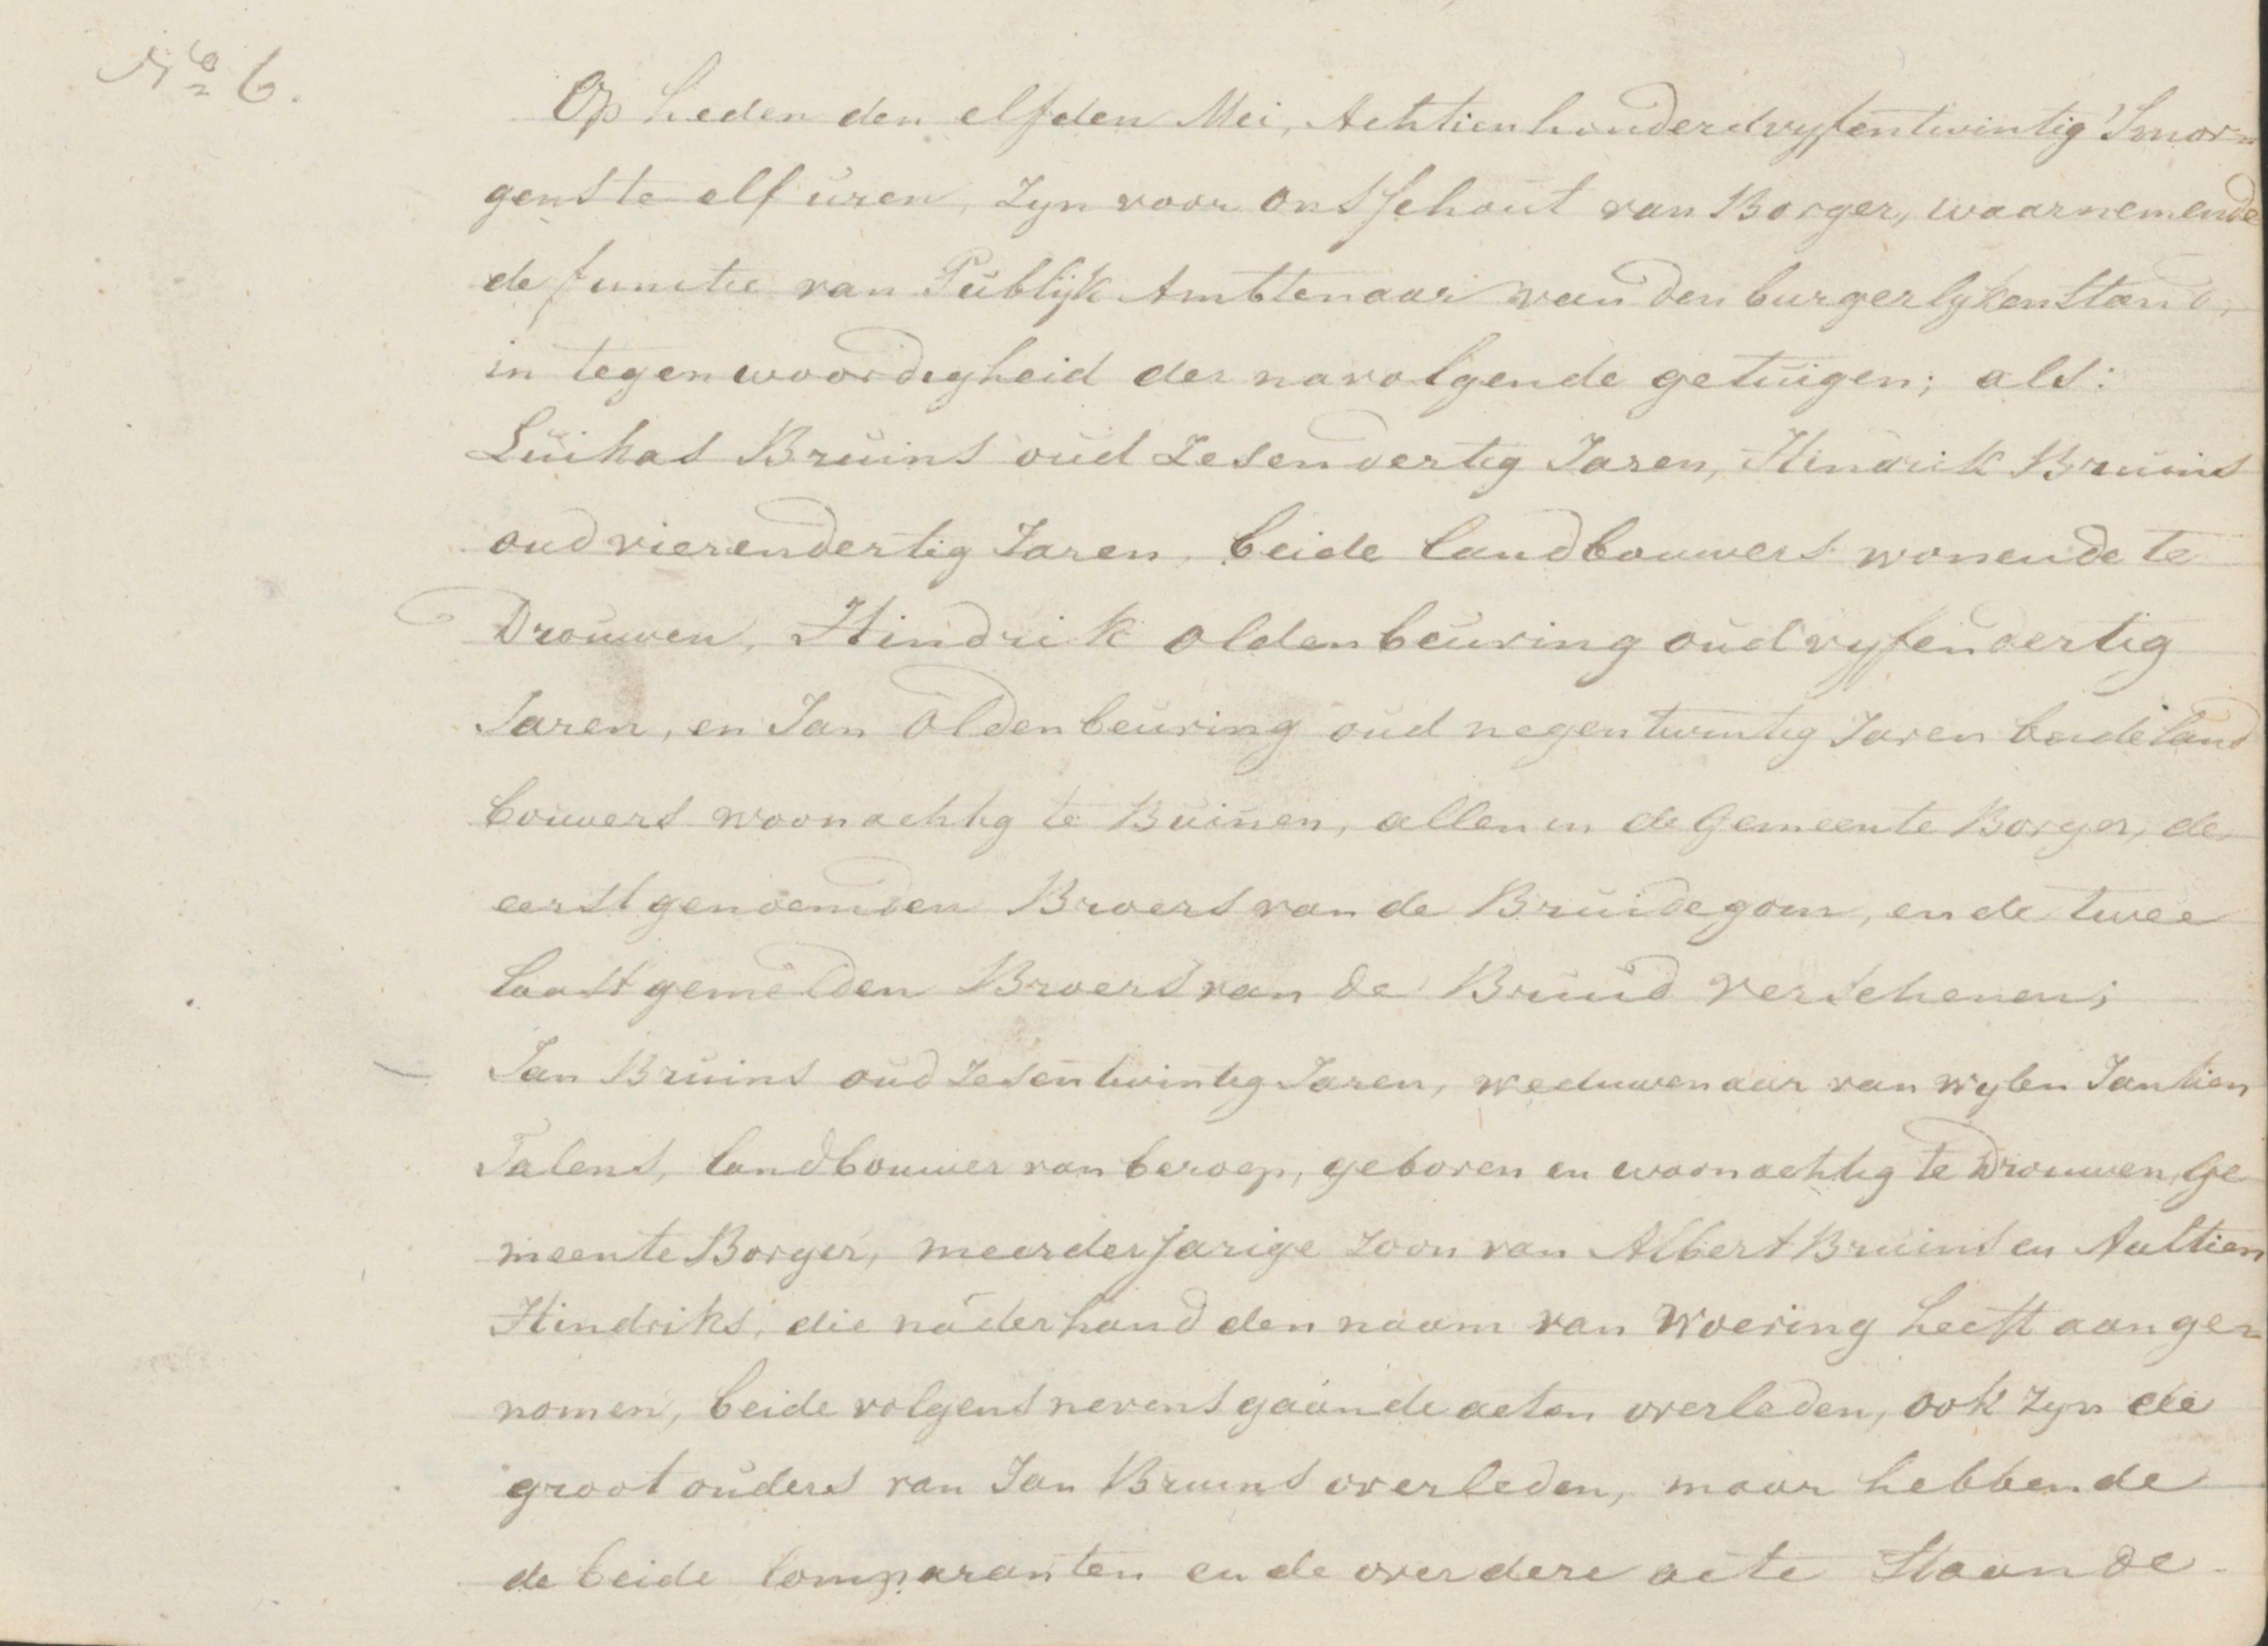 No 6.
Op heden den elfden Mei, Achtienhonderdvyfentwintig 'Smor=
gens te elf uren, zyn voor ons Schout van Borger, waarnemende
de functie van Publijk Ambtenaar van den burgerlyken Stand,
in tegenwoordigheid der navolgende getuigen; als:
Luikas Bruins oud Zesendertig Jaren, Hindrik Bruins
oud vierendertig Jaren, beide landbouwers wonende te
Drouwen, Hindrik oldenbeuving oud vyfendertig
Jaren, en Jan Oldenbeuving oud negentwintig Jaren beide land
bouwers woonachtig te Buinen, allen in de Gemeente Borger, de
eerstgenoemden Broers van de Bruidegom, en de twee
laastgemelden Broers van de Bruid verschenen;
Jan Bruins oud Zesentwintig Jaren, weduwenaar van wylen Jantien
Talens, landbouwer van beroep, geboren en woonachtig te Drouwen, Ge
meente Borger, meerderjarige zoon van Albert Bruins en Aaltien
Hindriks, die naderhand den naam van Woering heeft aange=
nomen, beide volgens nevensgaande acten overleden, ook zyn de
grootouders van Jan Bruins overleden, maar hebbende
de beide Comparanten en de over dere acte Staande